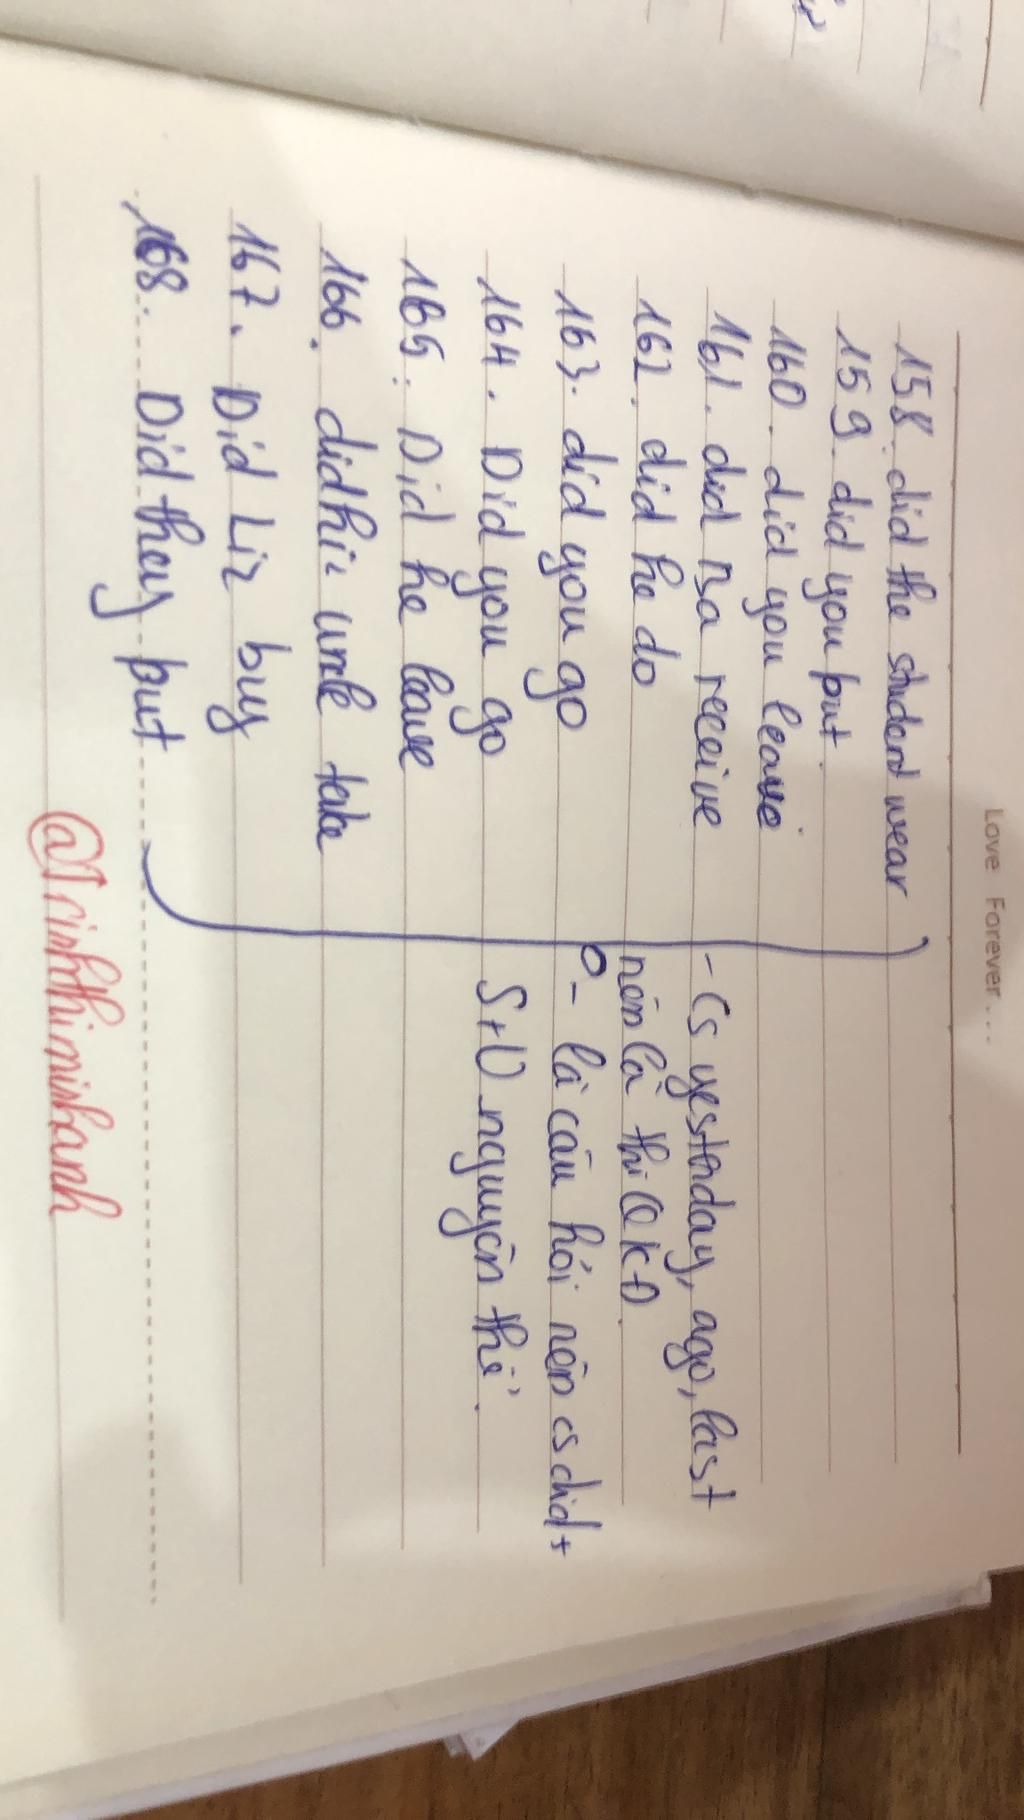 Love Forever...
158. did the student wear
159. did you put.
160. did you leave
161. did Nga receive
162. did he do
163. did you go
164. Did you go
165. Did he leave
166. did uncle take
167. Did Liz buy
168. Did they put
- Cs yesterday, ago, last
nên là thì QKĐ.
- là câu hỏi nên cs did +
S + V nguyên thể.
@Trinhthiminhanh